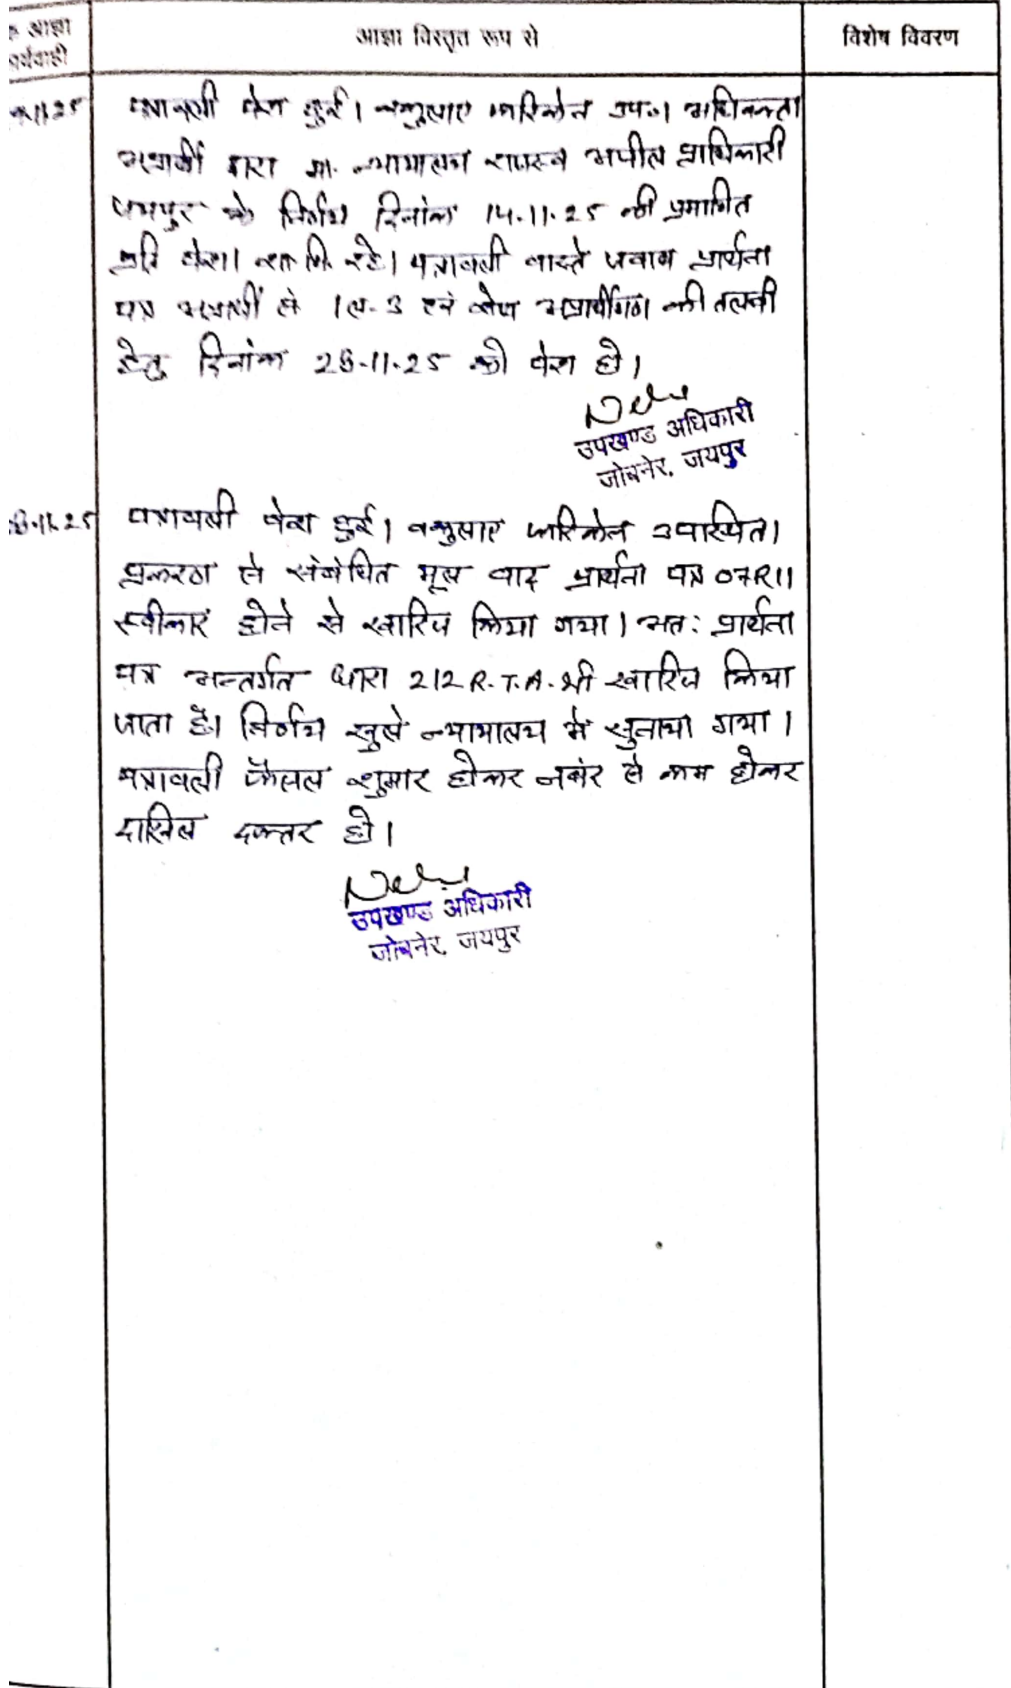 आज्ञा
आज्ञा विस्तृत रूप से
विशेष विवरण
र्यवाही
.11.25 पत्रावली पेश हुई। वकुलाए फरिकेन उप०। अधिवक्ता
अप्रार्थी द्वारा मा. न्यायालय राजस्व अपील प्राधिकारी
जयपुर के निर्णय दिनांक 14.11.25 की प्रमाणित
प्रति पेश। शा.मि. रहे। पत्रावली वास्ते जवाब प्रार्थना
पत्र अप्रार्थी सं 1 ल. 3 एवं शेष अप्रार्थीगण की तलबी
हेतु दिनांक 28.11.25 को पेश हो।
उपखण्ड अधिकारी
जोबनेर, जयपुर
8.11.25 पत्रावली पेश हुई। वकुलाए फरिकेन उपस्थित।
प्रकरण से संबंधित मूल वाद प्रार्थना पत्र 07R11
स्वीकार होने से खारिज किया गया। अत: प्रार्थना
पत्र अन्तर्गत धारा 212 R.T.A. भी खारिज किया
जाता है। निर्णय खुले न्यायालय में सुनाया गया।
पत्रावली फैसल शुमार होकर नबंर से कम होकर
दाखिल दफ्तर हो।
उपखण्ड अधिकारी
जोबनेर, जयपुर